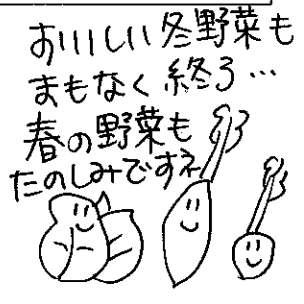 おいしい冬野菜も
まもなく終る…
春の野菜も
たのしみですネ